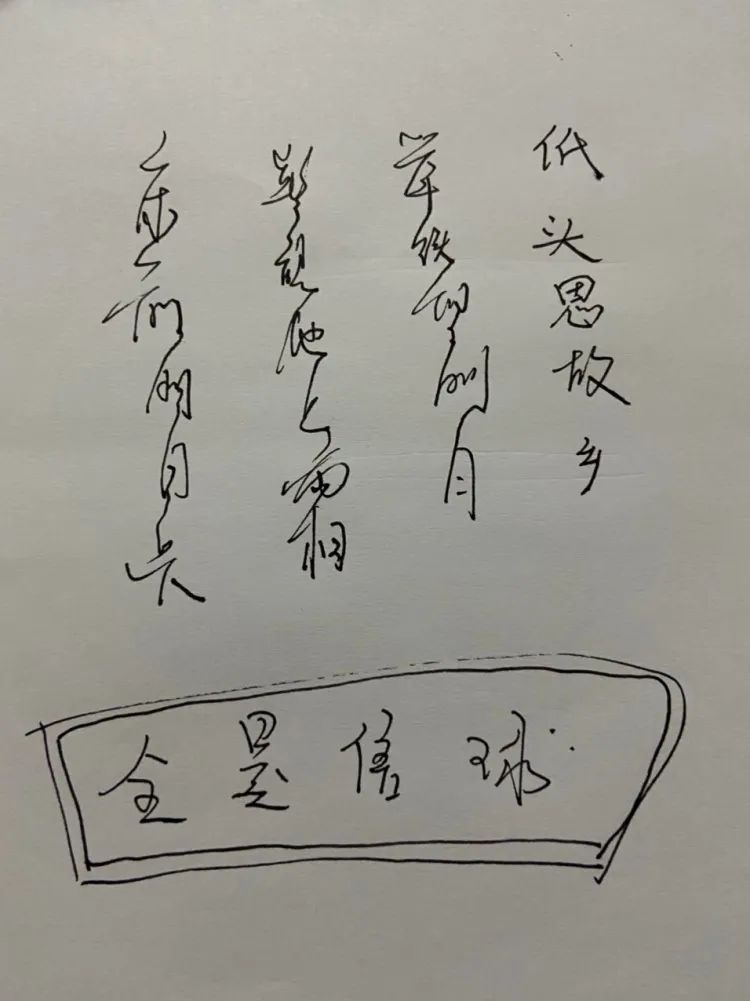 床前明月光
疑是地上霜
举头望明月
低头思故乡
全是信球